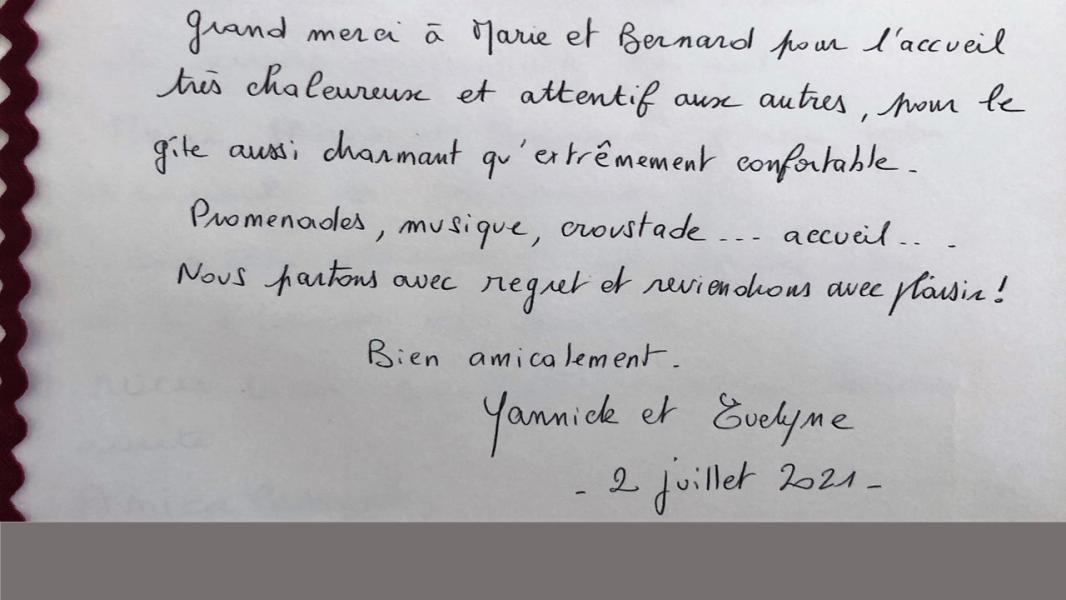 Grand merci à Marie et Bernard pour l'accueil
très chaleureux et attentif aux autres, pour le
gîte aussi charmant qu'extrêmement confortable.
Promenades, musique, croustade... accueil...
Nous partons avec regret et reviendrons avec plaisir!
Bien amicalement.
Yannick et Evelyne
- 2 juillet 2021 -